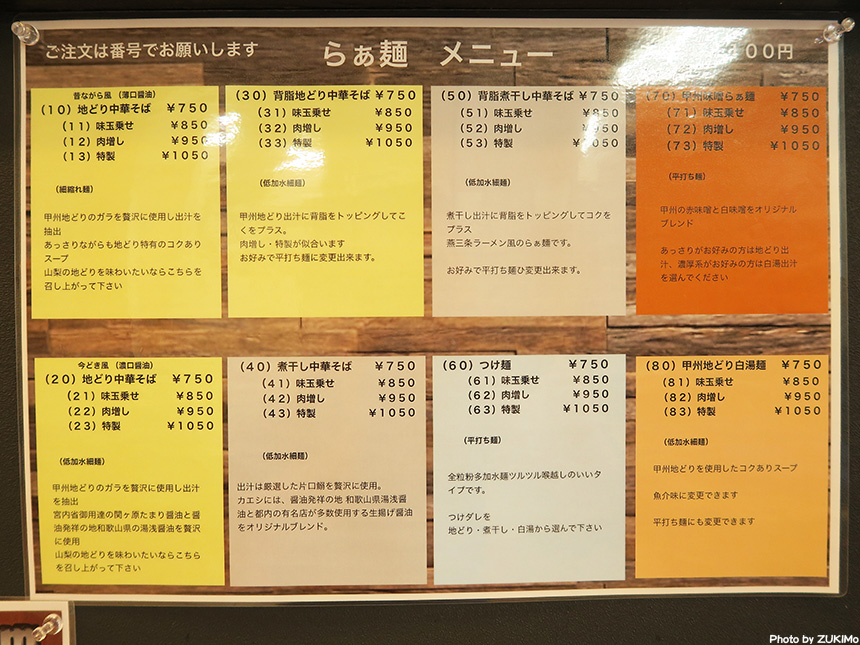 ご注文は番号でお願いします
らぁ麺 メニュー
00円
昔ながら風 (薄口醤油)
(10) 地どり中華そば ¥750
(11) 味玉乗せ ¥850
(12) 肉増し ¥950
(13) 特製 ¥1050
(細縮れ麺)
甲州地どりのガラを贅沢に使用し出汁を
抽出
あっさりながらも地どり特有のコクあり
スープ
山梨の地どりを味わいたいならこちらを
召し上がって下さい
(30) 背脂地どり中華そば ¥750
(31) 味玉乗せ ¥850
(32) 肉増し ¥950
(33) 特製 ¥1050
(低加水細麺)
甲州地どり出汁に背脂をトッピングしてこ
くをプラス。
肉増し・特製が似合います
お好みで平打ち麺に変更出来ます。
(50) 背脂煮干し中華そば ¥750
(51) 味玉乗せ ¥850
(52) 肉増し ¥950
(53) 特製 ¥1050
(低加水細麺)
煮干し出汁に背脂をトッピングしてコクを
プラス
燕三条ラーメン風のらぁ麺です。
お好みで平打ち麺ひ変更出来ます。
(70) 甲州味噌らぁ麺 ¥750
(71) 味玉乗せ ¥850
(72) 肉増し ¥950
(73) 特製 ¥1050
(平打ち麺)
甲州の赤味噌と白味噌をオリジナル
ブレンド
あっさりがお好みの方は地どり出
汁、濃厚系がお好みの方は白湯出汁
を選んでください
今どき風 (濃口醤油)
(20) 地どり中華そば ¥750
(21) 味玉乗せ ¥850
(22) 肉増し ¥950
(23) 特製 ¥1050
(低加水細麺)
甲州地どりのガラを贅沢に使用し出汁
を抽出
宮内省御用達の関ヶ原たまり醤油と醤
油発祥の地和歌山県の湯浅醤油を贅沢
に使用
山梨の地どりを味わいたいならこちら
を召し上がって下さい
(40) 煮干し中華そば ¥750
(41) 味玉乗せ ¥850
(42) 肉増し ¥950
(43) 特製 ¥1050
(低加水細麺)
出汁は厳選した片口鰯を贅沢に使用。
カエシには、醤油発祥の地 和歌山県湯浅醤
油と都内の有名店が多数使用する生揚げ醤油
をオリジナルブレンド。
(60) つけ麺 ¥750
(61) 味玉乗せ ¥850
(62) 肉増し ¥950
(63) 特製 ¥1050
(平打ち麺)
全粒粉多加水麺ツルツル喉越しのいいタ
イプです。
つけダレを
地どり・煮干し・白湯から選んで下さい
(80) 甲州地どり白湯麺 ¥750
(81) 味玉乗せ ¥850
(82) 肉増し ¥950
(83) 特製 ¥1050
(低加水細麺)
甲州地どりを使用したコクありスープ
魚介味に変更できます
平打ち麺にも変更できます
Photo by ZUKIMo